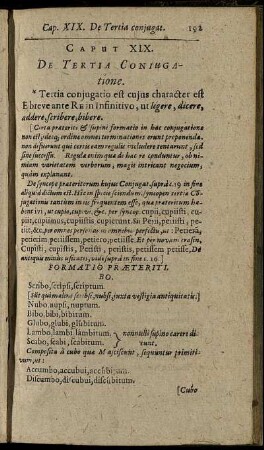 Cap. XIX. De Tertia conjugat. 192
CAPUT XIX.
DE TERTIA CONIUGA-
tione.
* Tertia conjugatio est cujus character est
E breve ante RE in Infinitivo, ut legere, dicere,
addere, scribere, bibere.
[Certa præteriti & supini formatio in hac conjugatione
non est, ideoq; ordine omnes terminationes erunt perpendendæ.
sed
sine successu. Regula enim quæ de hac re conduntur, ob ni-
miam varietatem verborum, magis intricant negocium,
quàm explanant.
De syncope præteritorum hujus Conjugat. supra c. 19 in fine
aliquid dictum est. Hîc in specie sciendum, syncopen certæ Con-
jugationis tantùm in iis frequentem esse, quæ præteritum ha-
bent ivi, ut cupio, cupivi, &c. per syncop. cupii, cupiisti, cu-
piit, cupiimus, cupiistis, cupierunt. Sic Peto, petii, petiisti, pe-
petierim, petiissem, petiero, petiisse. Et per
Cupîsti, cupîstis, Petîsti, petîstis, petîssem, petîsse. De
antiquis minùs usitatis, vide supra in fine c. 16]
FORMATIO PRÆTERITI.
BO.
Scribo, scripsi, scriptum.
[Sic quim alens scribsi, nubsi, juxta vestigia antiquitatis]
Nubo, nupsi, nuptum.
Bibo, bibi, bibitum.
Glubo, glubi, glubitum.
Lambo, lambi, lambitum. } nonnulli supino carere di-
Scabo, scabi, scabitum. } cunt.
Composita à cubo quæ M asciscunt, sequuntur primiti-
vum, ut:
Accumbo, accubui, accubitum.
Discumbo, discubui, discubitum.
[Cubo